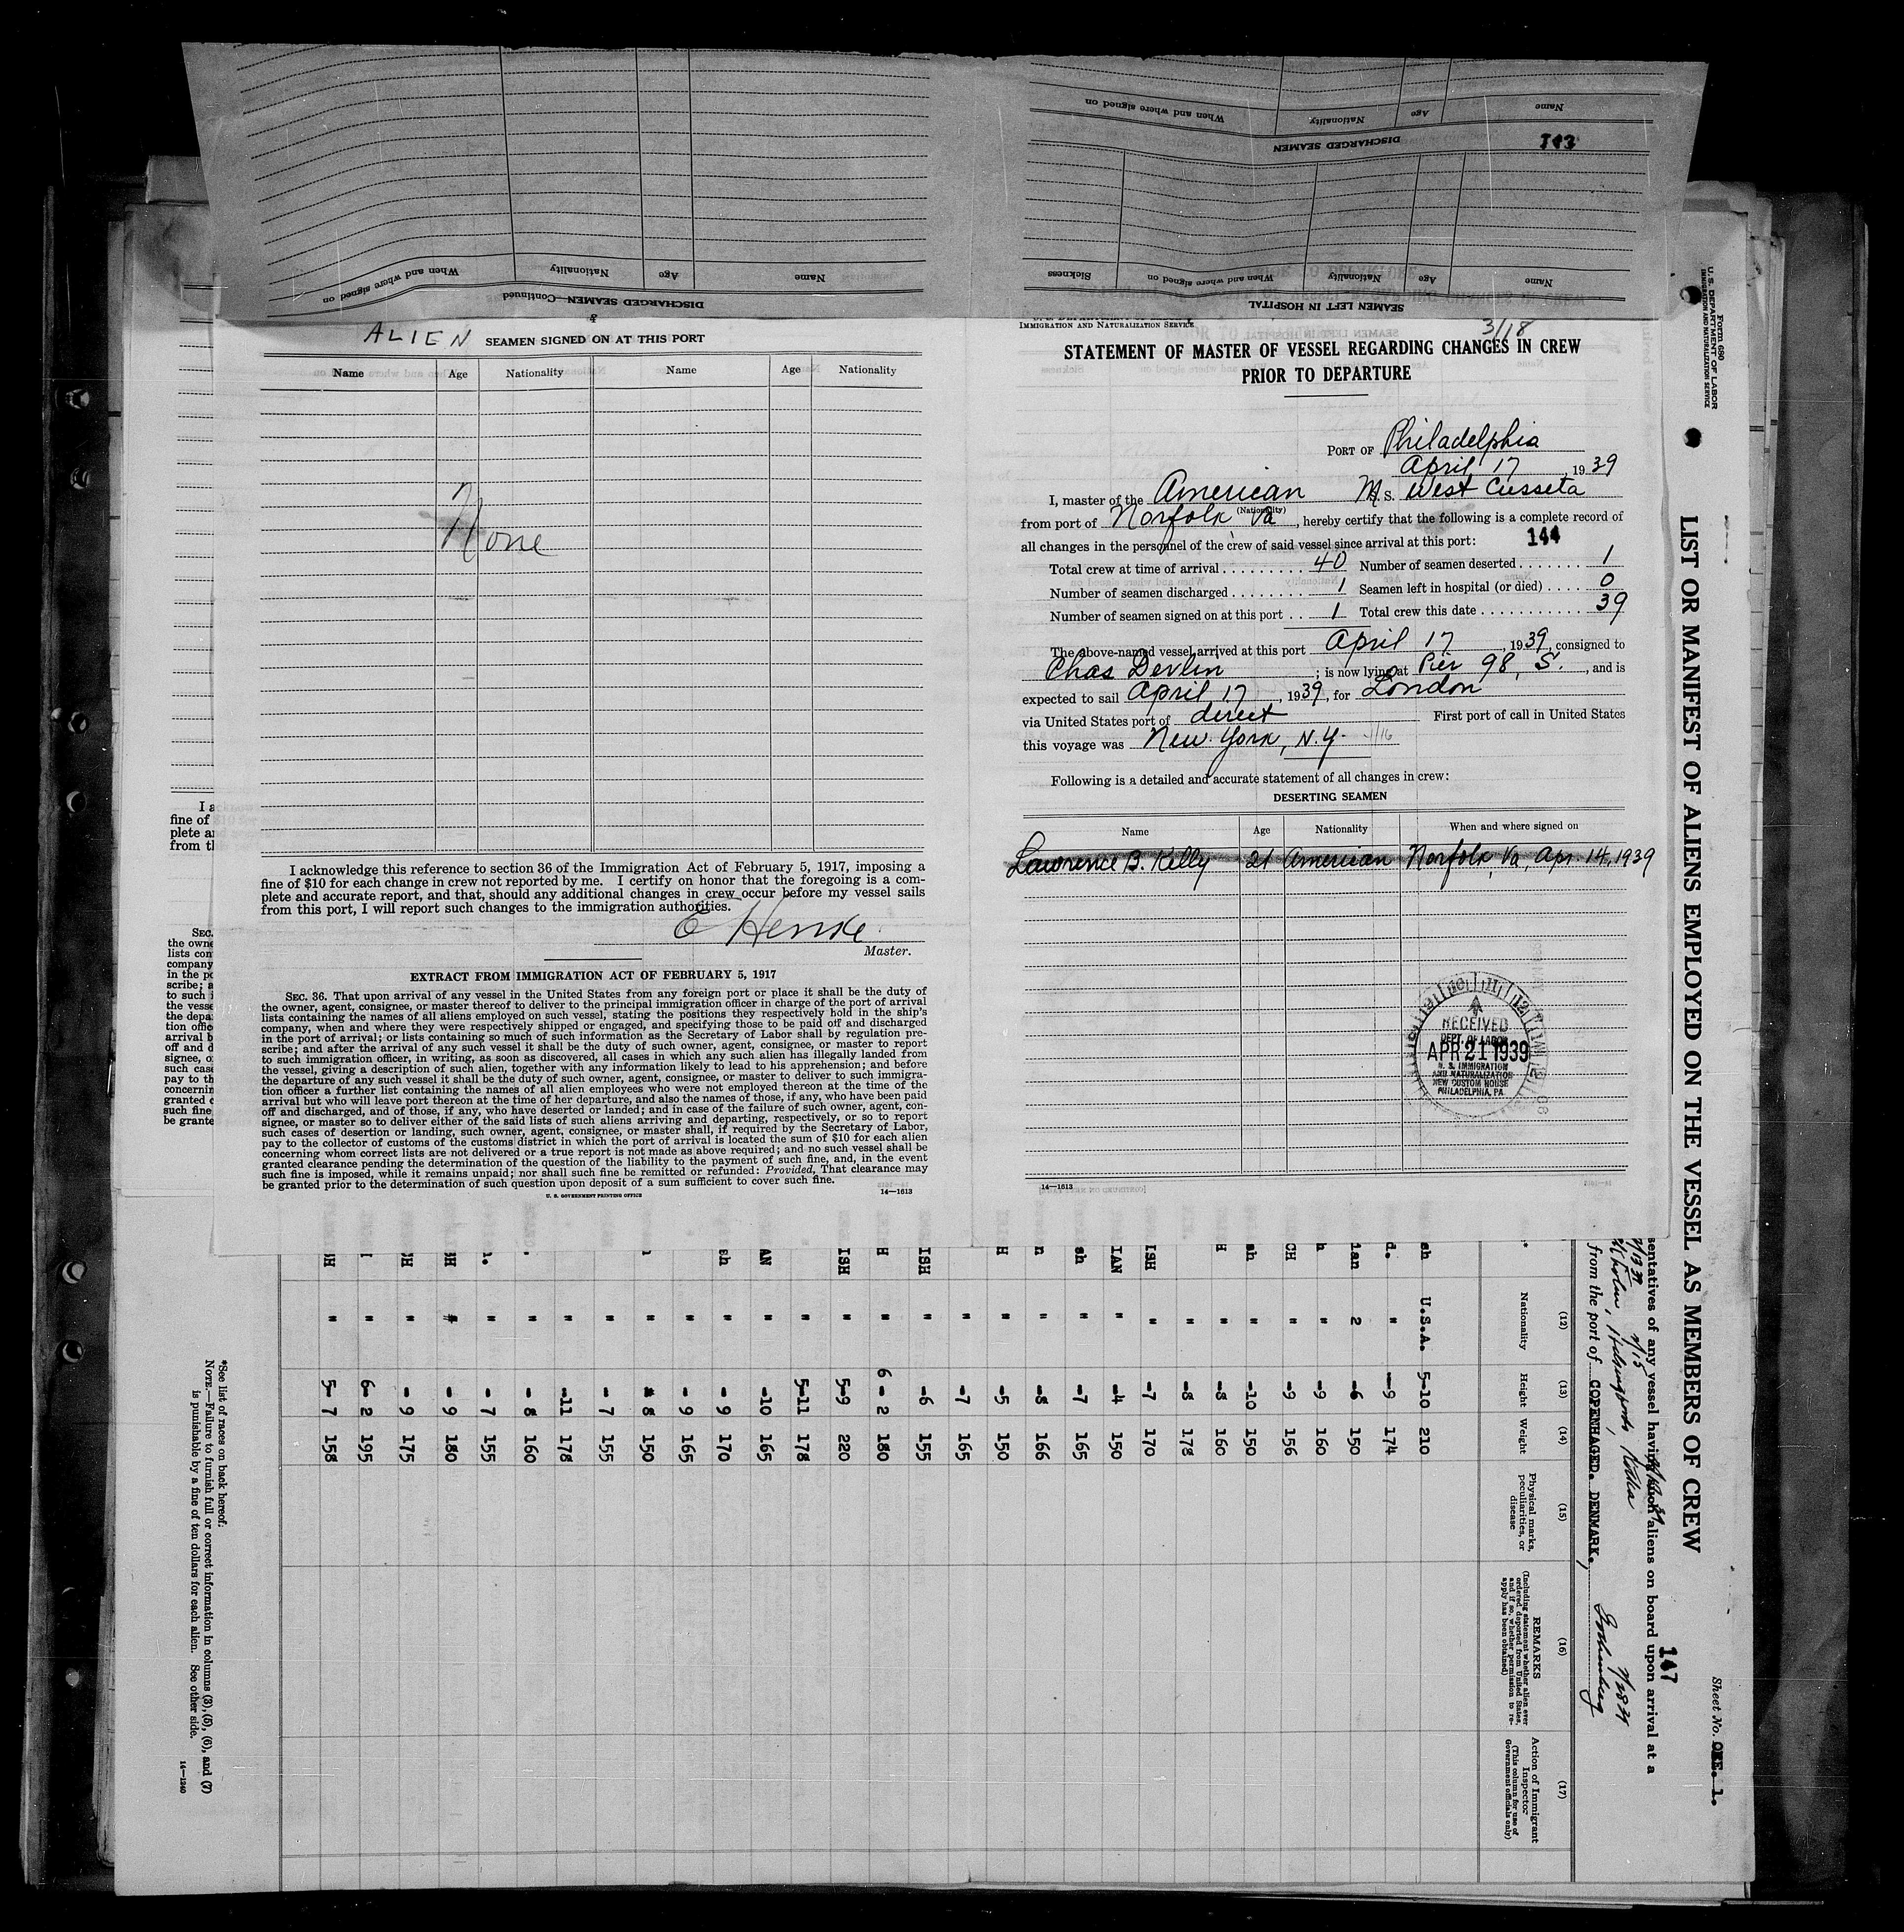 When and where signed on
Nationality
Age
Name
DISCHARGED SEAMEN
143
When and where signed on
Nationality
Age
Name
DISCHARGED SEAMEN—Continued
Sickness
When and where signed on
Nationality
Age
Name
SEAMEN LEFT IN HOSPITAL
ALIEN SEAMEN SIGNED ON AT THIS PORT
Name Age Nationality Name Age Nationality
None
I acknowledge this reference to section 36 of the Immigration Act of February 5, 1917, imposing a
fine of $10 for each change in crew not reported by me. I certify on honor that the foregoing is a com-
plete and accurate report, and that, should any additional changes in crew occur before my vessel sails
from this port, I will report such changes to the immigration authorities.
Master.
EXTRACT FROM IMMIGRATION ACT OF FEBRUARY 5, 1917
SEC. 36. That upon arrival of any vessel in the United States from any foreign port or place it shall be the duty of
the owner, agent, consignee, or master thereof to deliver to the principal immigration officer in charge of the port of arrival
lists containing the names of all aliens employed on such vessel, stating the positions they respectively hold in the ship's
company, when and where they were respectively shipped or engaged, and specifying those to be paid off and discharged
in the port of arrival; or lists containing so much of such information as the Secretary of Labor shall by regulation pre-
scribe; and after the arrival of any such vessel it shall be the duty of such owner, agent, consignee, or master to report
to such immigration officer, in writing, as soon as discovered, all cases in which any such alien has illegally landed from
the vessel, giving a description of such alien, together with any information likely to lead to his apprehension; and before
the departure of any such vessel it shall be the duty of such owner, agent, consignee, or master to deliver to such immigra-
tion officer a further list containing the names of all alien employees who were not employed thereon at the time of the
arrival but who will leave port thereon at the time of her departure, and also the names of those, if any, who have been paid
off and discharged, and of those, if any, who have deserted or landed; and in case of the failure of such owner, agent, con-
signee, or master so to deliver either of the said lists of such aliens arriving and departing, respectively, or so to report
such cases of desertion or landing, such owner, agent, consignee, or master shall, if required by the Secretary of Labor,
pay to the collector of customs of the customs district in which the port of arrival is located the sum of $10 for each alien
concerning whom correct lists are not delivered or a true report is not made as above required; and no such vessel shall be
granted clearance pending the determination of the question of the liability to the payment of such fine, and, in the event
such fine is imposed, while it remains unpaid; nor shall such fine be remitted or refunded: Provided, That clearance may
be granted prior to the determination of such question upon deposit of a sum sufficient to cover such fine.
U. S. GOVERNMENT PRINTING OFFICE 14—1613
IMMIGRATION AND NATURALIZATION SERVICE
3/18
STATEMENT OF MASTER OF VESSEL REGARDING CHANGES IN CREW
PRIOR TO DEPARTURE
PORT OF Philadelphia
April 17, 1939
I, master of the American M.S. West Cusseta
(Nationality)
from port of Norfolk, Va, hereby certify that the following is a complete record of
all changes in the personnel of the crew of said vessel since arrival at this port:
144
Total crew at time of arrival 40 Number of seamen deserted 1
Number of seamen discharged 1 Seamen left in hospital (or died) 0
Number of seamen signed on at this port 1 Total crew this date 39
The above-named vessel arrived at this port April 17, 1939, consigned to
Chas Devlin; is now lying at Pier 98, S., and is
expected to sail April 17, 1939, for London
via United States port of direct First port of call in United States
this voyage was New York, N.Y.
Following is a detailed and accurate statement of all changes in crew:
DESERTING SEAMEN
Name Age Nationality When and where signed on
Lawrence B. Kelly 21 American Norfolk, Va, Apr. 14, 1939
RECEIVED
DEPT. OF LABOR
APR 21 1939
U. S. IMMIGRATION
AND NATURALIZATION
NEW CUSTOM HOUSE
PHILADELPHIA, PA
14—1613
Form 680
U. S. DEPARTMENT OF LABOR
IMMIGRATION AND NATURALIZATION SERVICE
Sheet No. ONE. 1.
LIST OR MANIFEST OF ALIENS EMPLOYED ON THE VESSEL AS MEMBERS OF CREW
147
sentatives of any vessel having such aliens on board upon arrival at a
from the port of COPENHAGED. DENMARK.,
(12) (13) (14) (15) (16) (17)
Nationality Height Weight Physical marks, peculiarities, or disease REMARKS Action of Immigrant Inspector
(Including statement whether alien ever ordered deported from United States, and if so, whether permission to reapply has been obtained)
(This column for use of Government officials only)
sh U.S.A. 5-10 210
d. " -9 174
ian 2 -6 150
h " -9 160
CH " -9 156
sh " -10 150
H " -8 160
" -8 178
ISH " -7 170
IAN " -4 150
sh " -7 165
n " -8 166
H " -5 150
" -7 165
ISH " -6 155
H " 6-2 180
ISH " 5-9 220
" 5-11 178
AN " -10 165
sh " -9 170
" -9 165
" -8 150
" -7 155
" -11 178
" -8 160
" -7 155
SH " -9 180
SH " -9 175
" 6-2 195
SH " 5-7 158
*See list of races on back hereof.
NOTE.—Failure to furnish full or correct information in columns (3), (5), (6), and (7)
is punishable by a fine of ten dollars for each alien. See other side.
14—1240